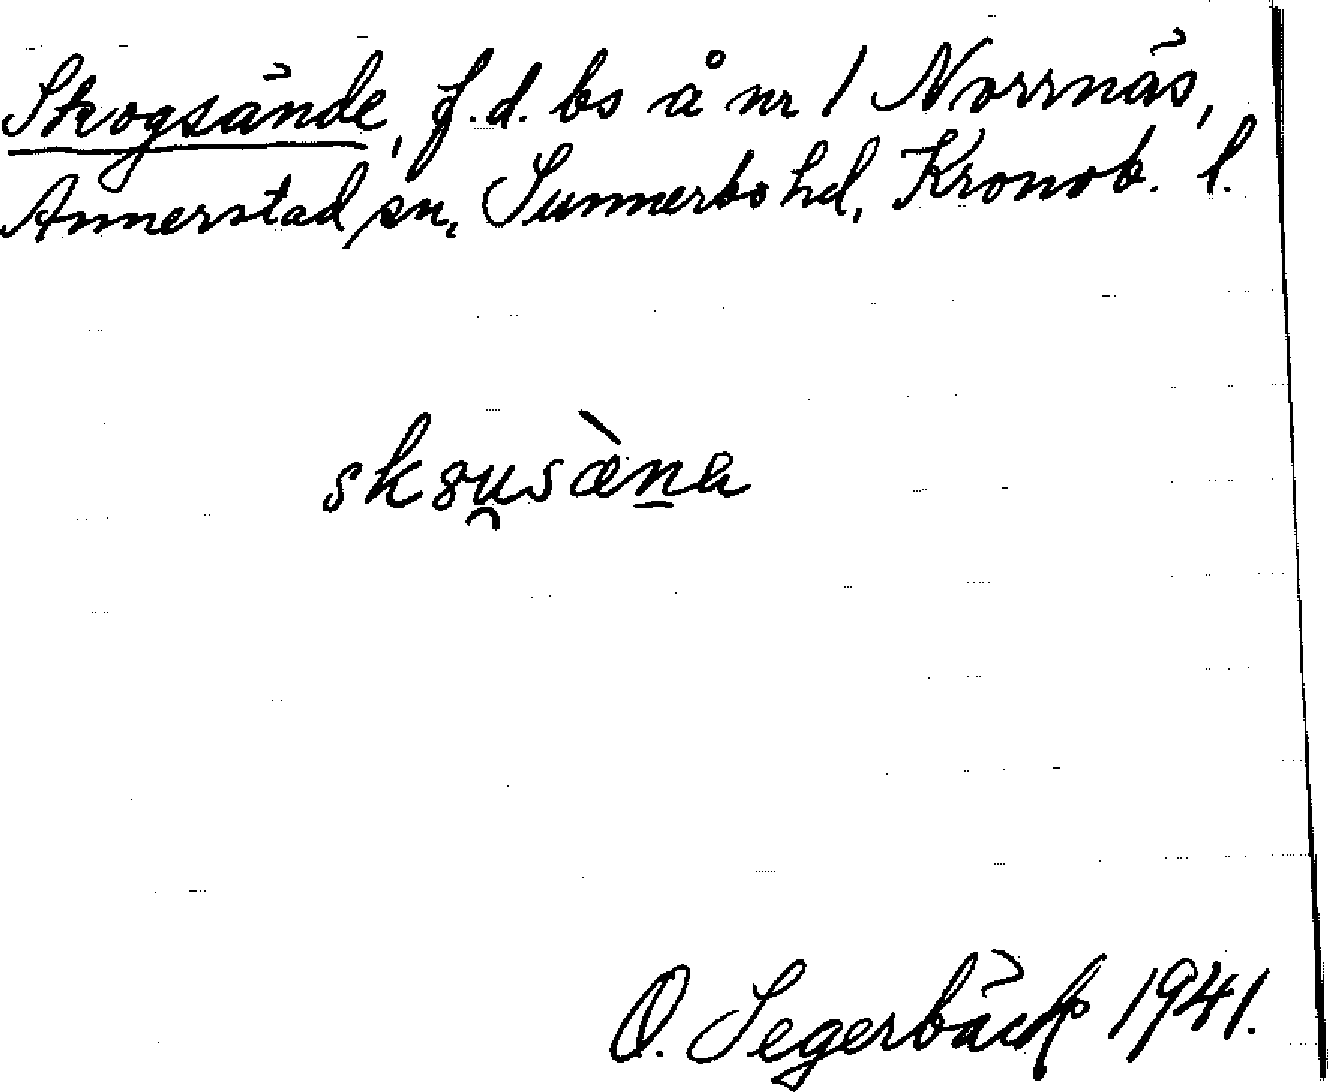 Skogsände, f.d. bs å nr 1 Norrnäs,
Annerstad sn, Sunnerbo hd, Kronob. l.
sk8u̯sæ̀n̠a
O. Segerbäck 1941.